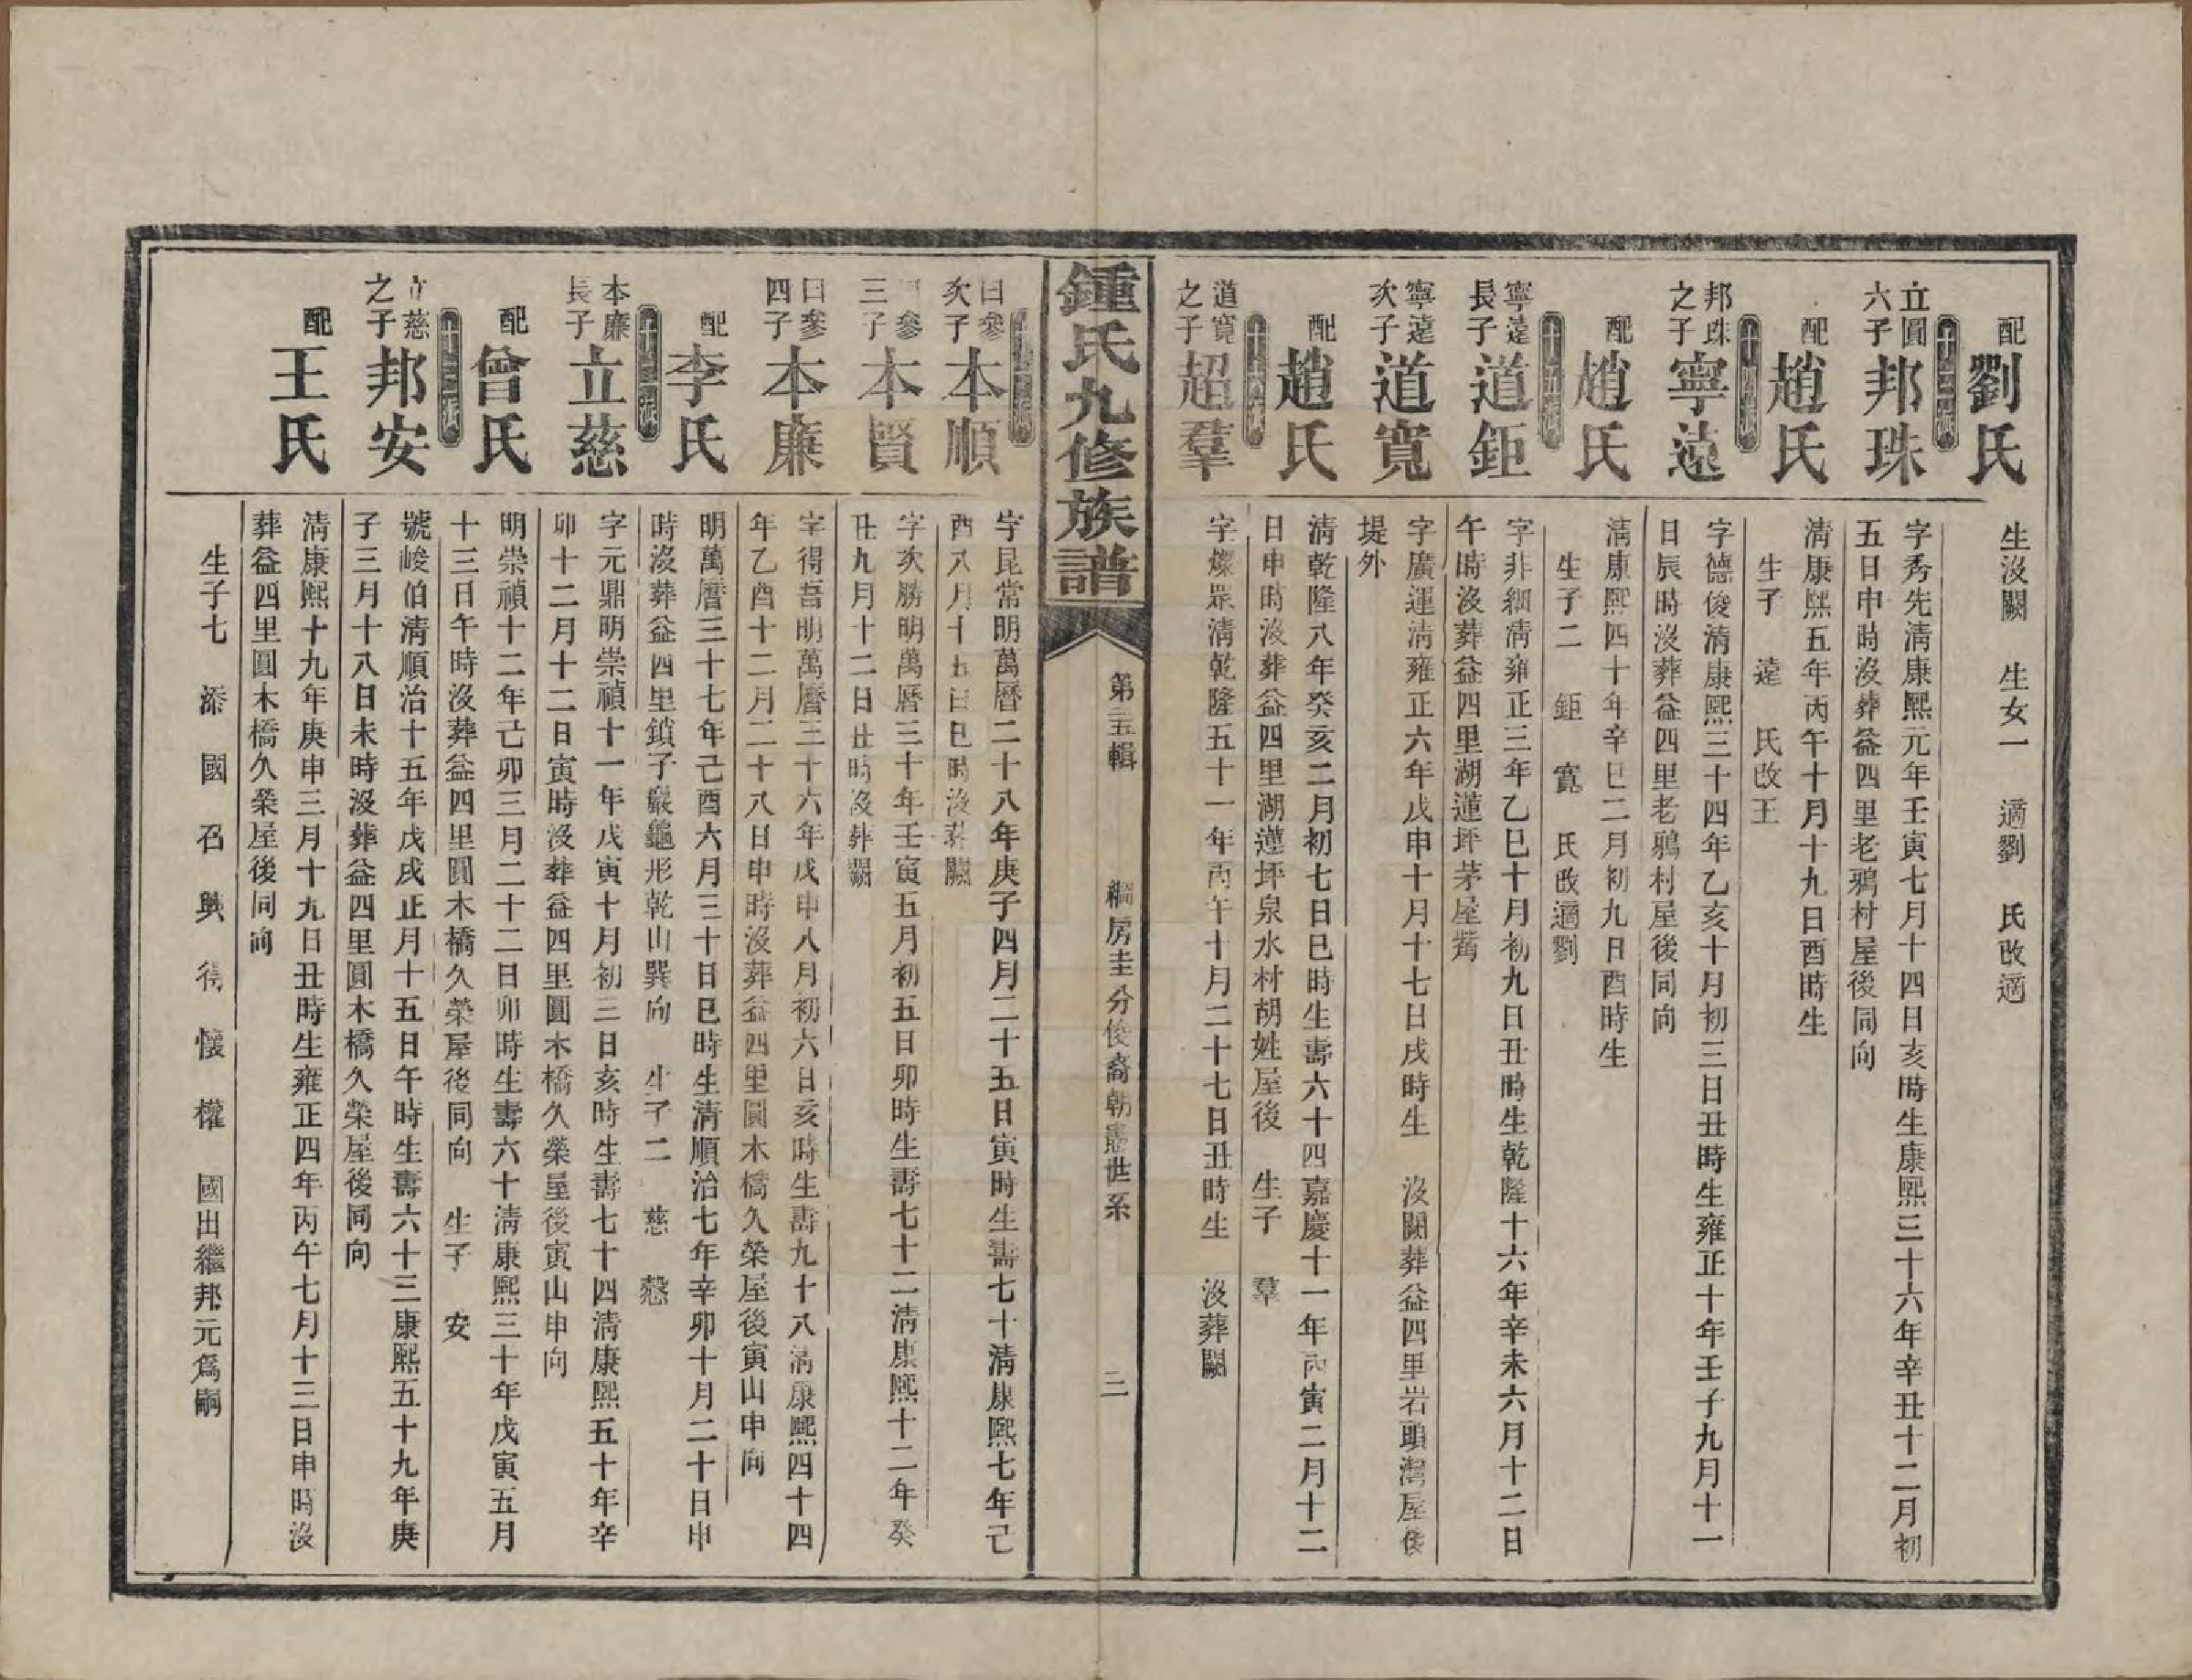 配劉氏
生沒闕　生女一　適劉　氏改適
十三派
立圓六子邦珠
字秀先清康熙元年壬寅七月十四日亥時生康熙三十六年辛丑十二月初
五日申時沒葬益四里老鴉村屋後同向
配趙氏
清康熙五年丙午十月十九日酉時生
生子　遠　氏改王
十四派
邦珠之子寧遠
字德俊清康熙三十四年乙亥十月初三日丑時生雍正十年壬子九月十一
日辰時沒葬益四里老鴉村屋後同向
配趙氏
清康熙四十年辛巳二月初九日酉時生
生子二　鉅　寬　氏改適劉
十五派
寧遠長子道鉅
字非細清雍正三年乙巳十月初九日丑時生乾隆十六年辛未六月十二日
午時沒葬益四里湖蓮坪茅屋嘴
寧遠次子道寬
字廣運清雍正六年戊申十月十七日戌時生　沒闕葬益四里岩頭灣屋後
堤外
配趙氏
清乾隆八年癸亥二月初七日巳時生壽六十四嘉慶十一年丙寅二月十二
日申時沒葬益四里湖蓮坪泉水村胡姓屋後　生子　羣
十六派
道寬之子超羣
字燦眾清乾隆五十一年丙午十月二十七日丑時生　沒葬闕
鍾氏九修族譜
第三五輯
綱房圭分後裔朝憲世系
二
日參次子本順
字昆常明萬曆二十八年庚子四月二十五日寅時生壽七十清康熙七年己
酉八月十五日巳時沒葬闕
日參三子本賢
字次勝明萬曆三十年壬寅五月初五日卯時生壽七十二清康熙十二年癸
丑九月十二日丑時沒葬闕
日參四子本廉
字得吾明萬曆三十六年戊申八月初六日亥時生壽九十八清康熙四十四
年乙酉十二月二十八日申時沒葬益四里圓木橋久榮屋後寅山申向
配李氏
明萬曆三十七年己酉六月三十日巳時生清順治七年辛卯十月二十日申
時沒葬益四里鎖子巖龜形乾山巽向　生子二　慈　慤
十二派
本廉長子立慈
字元鼎明崇禎十一年戊寅十月初三日亥時生壽七十四清康熙五十年辛
卯十二月十二日寅時沒葬益四里圓木橋久榮屋後寅山申向
配曾氏
明崇禎十二年己卯三月二十二日卯時生壽六十清康熙三十年戊寅五月
十三日午時沒葬益四里圓木橋久榮屋後同向　生子　安
十三派
立慈之子邦安
號峻伯清順治十五年戊戌正月十五日午時生壽六十三康熙五十九年庚
子三月十八日未時沒葬益四里圓木橋久榮屋後同向
配王氏
清康熙十九年庚申三月十九日丑時生雍正四年丙午七月十三日申時沒
葬益四里圓木橋久榮屋後同向
生子七　添　國　召　興　得　懷　權　國出繼邦元為嗣